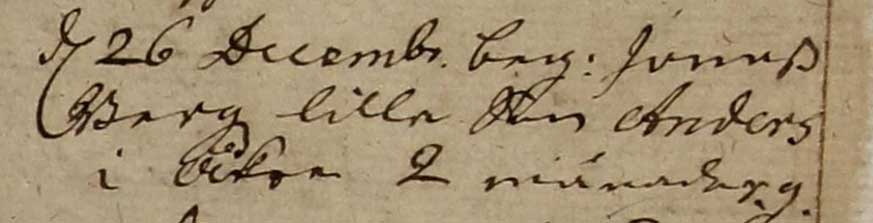 d 26 Decembr. beg: Jonas
Berg lille Son Anders
i Åkre 2 månader. g.